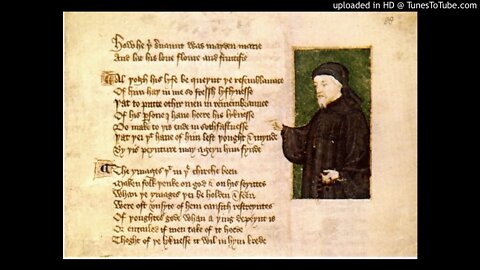 uploaded in HD @ TunesToTube.com
How he þi seruaunt was mayden marie
And lat his loue floure and fructifie
Al þogh his lyfe be queynt þe resemblaunce
Of him haþ in me so fressh lyflynesse
Þat to putte othir men in remembraunce
Of his persone I haue heere his lyknesse
Do make to þis ende in sothfastnesse
Þat þei þt haue of him lest þought & mynde
By þis peynture may ageyn him fynde
The ymages þt in þe chirche been
Maken folk þenke on god & on his seyntes
Whan þe ymages þei be holden & seen
Were oft vnsyte of hem causith restreyntes
Of þoughtes gode whan a þing depeynt is
Or entailed if men take of it heede
Thoght of þe lyknesse it wil in hym brede